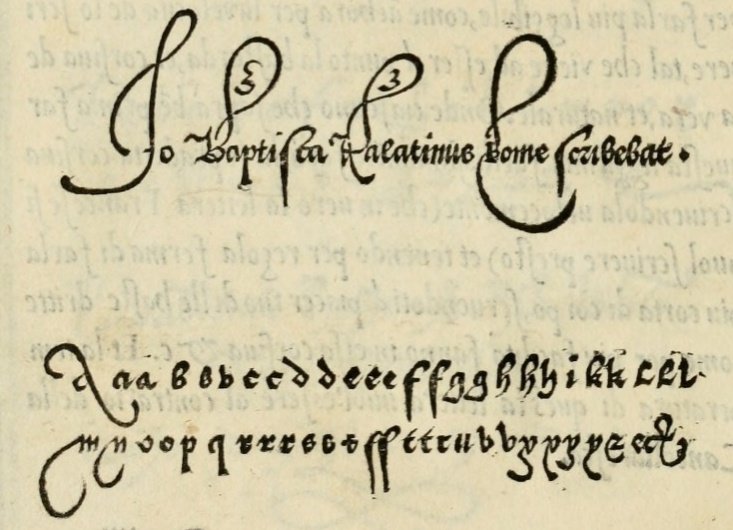 Jo Baptista Palatinus Rome scribebat.
A a a b b b c c d d e e e f f g g h h h i k k l l l.
m n o o p q r r r s s s ſſ t t r u v v y y y y z et &